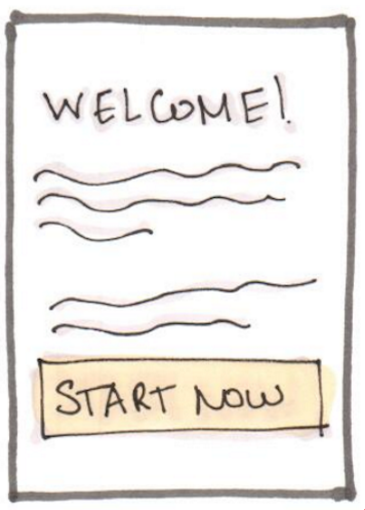 WELCOME!
START NOW